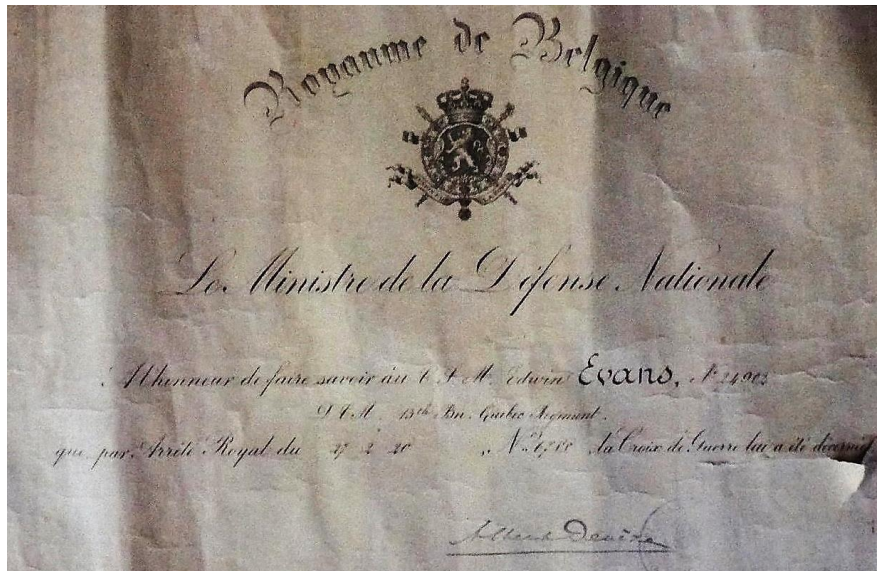 Royaume de Belgique
Le Ministre de la Défense Nationale
A l'honneur de faire savoir au C S M Edwin Evans, No 24903
13th Bn. Quebec Regiment.
que par Arrêté Royal du 27 2 20 No la Croix de Guerre lui a été décernée
Albert Devèze